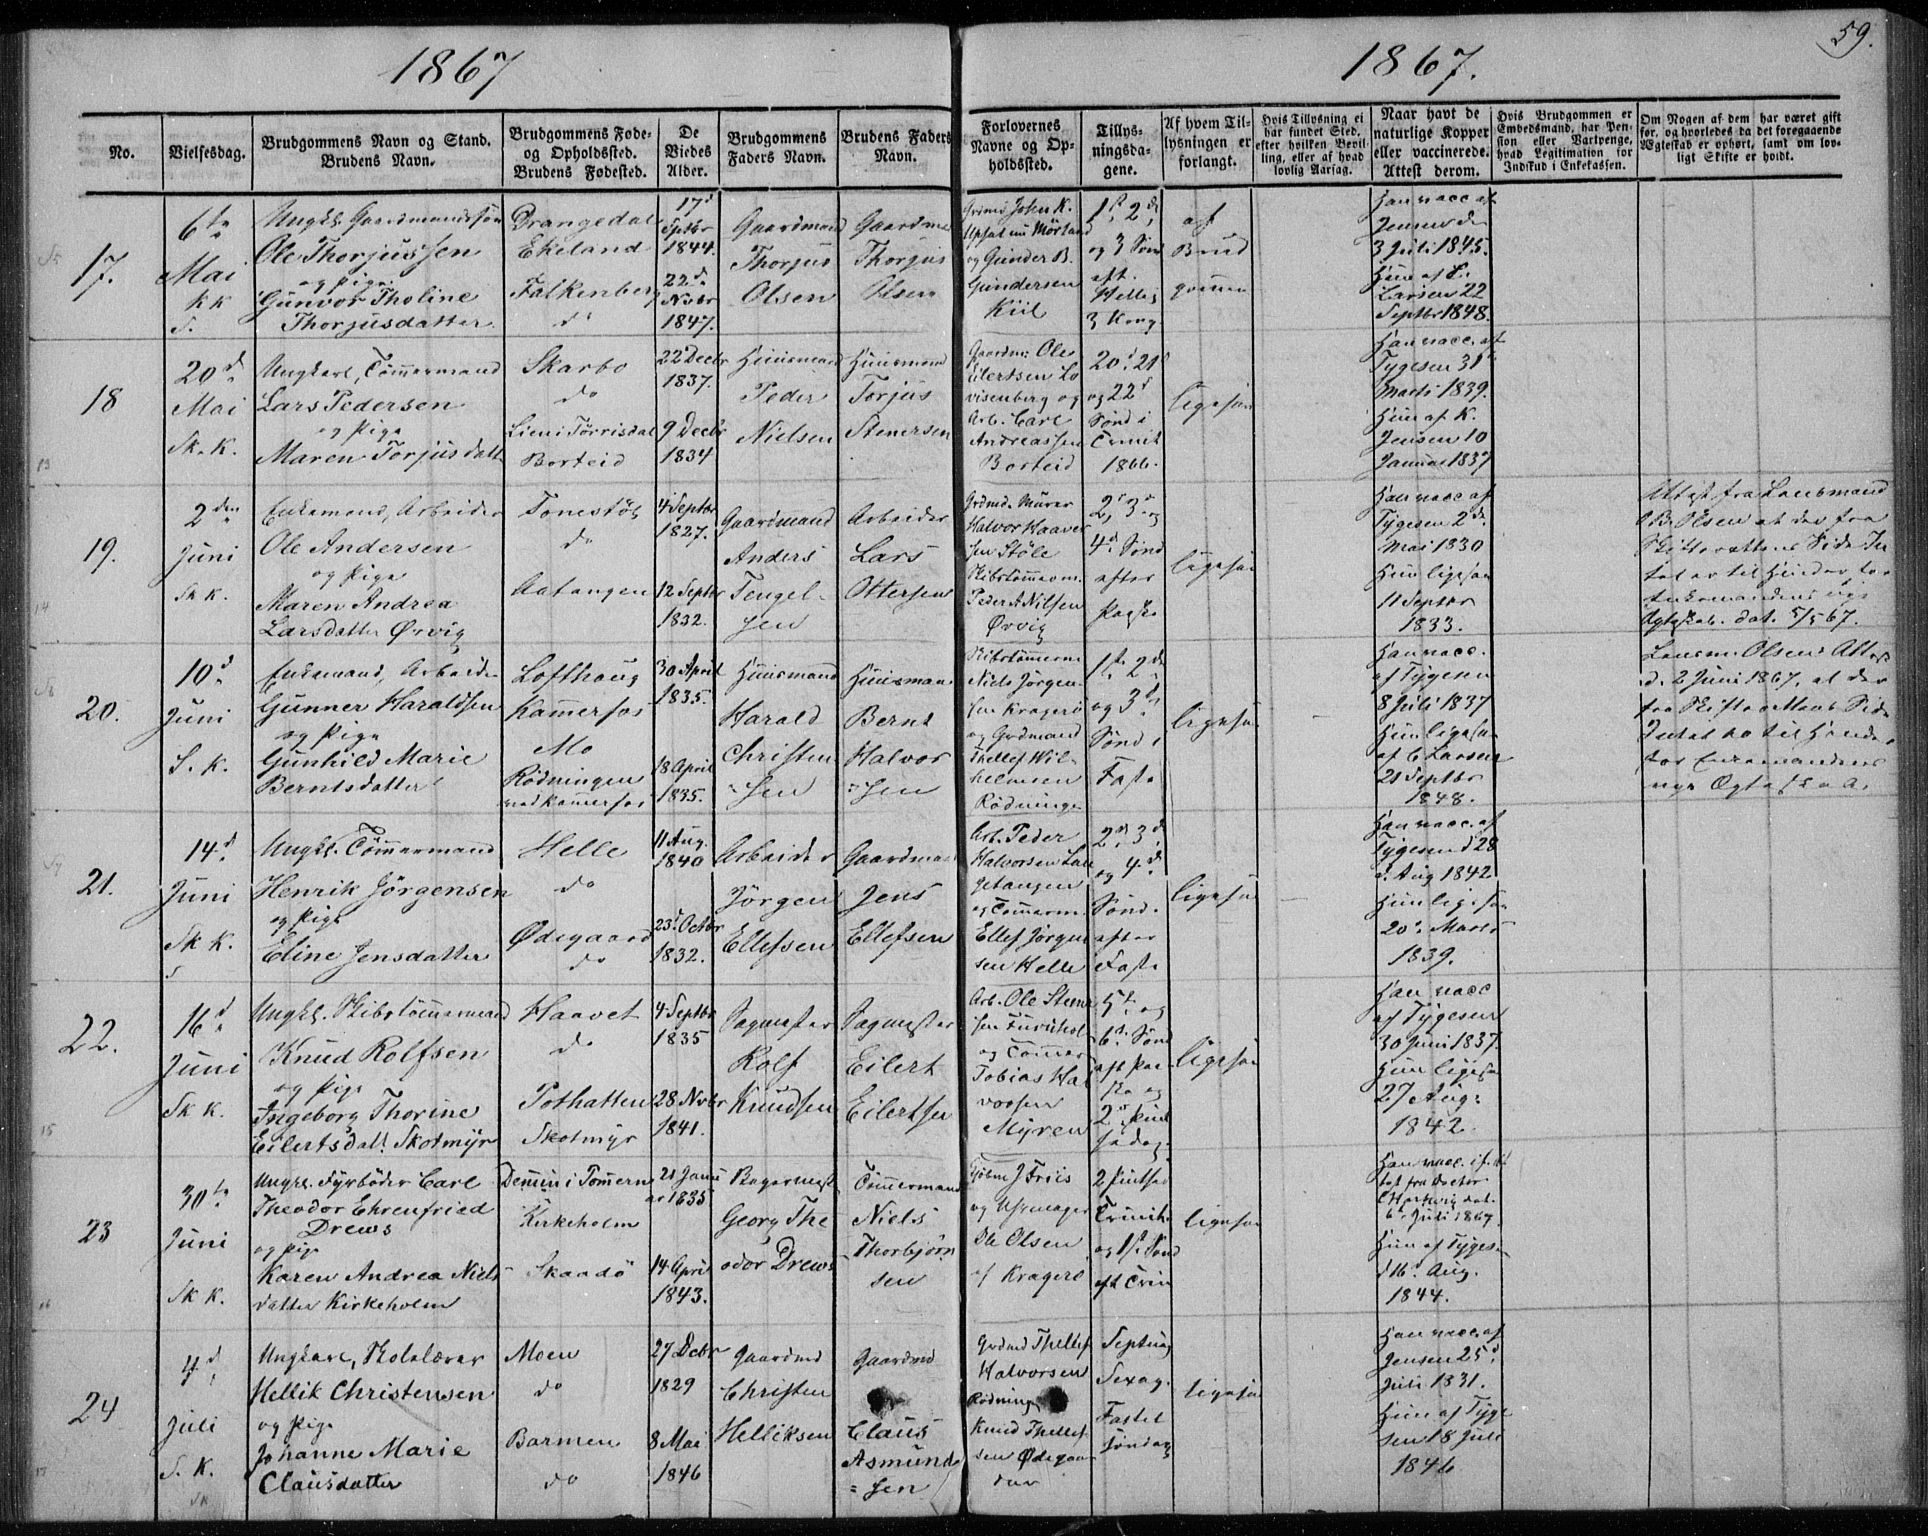 1867
1867.
59.
No.
Vielsesdag.
Brudgommens Navn og Stand.
Brudens Navn.
Brudgommens Føde-
og Opholdssted.
Brudens Fødested.
De
Viedes
Alder.
Brudgommens
Faders Navn.
Brudens Faders
Navn.
Forlovernes
Navne og Op-
holdssted.
Tillys-
ningsda-
gene.
Af hvem Til-
lysningen er
forlangt.
Hvis Tillysning ei
har fundet Sted,
efter hvilken Bevil-
ling, eller af hvad
lovlig Aarsag.
Naar havt de
naturlige Kopper
eller vaccinerede.
Attest derom.
Hvis Brudgommen er
Embedsmand, har Pen-
sion eller Vartpenge,
hvad Legitimation for
Indskud i Enkekassen.
Om Nogen af dem har været gift
før, og hvorledes da det foregaaende
Ægteskab er ophørt, samt om lov-
ligt Skifte er holdt.
17.
6te
Mai
KK
S.
Ungk. Gaardmandssøn
Ole Thorjussen
og Pige
Gunvor Tholine
Thorjusdatter
Drangedal
Ekeland
Falkenberg
do
17d
Septbr
1844.
22d
Novbr
1847.
Gaardmand
Thorjus
Olsen
Gaardma
Thorjus
Olsen
Grdmd John K.
Mørland
og Gunder B.
Gundersen
Kiil
1st, 2de
og 3 Sønd
eft.
Hellig
3 Kong
af
Brud
gommen
Han vacc af
Jensen d
3 Juli 1845.
Hun af L.
Larsen 22
Septbr 1848.
18
20d
Mai
Sk. K.
Ungkarl, Tømmermand
Lars Pedersen
og Pige
Maren Torjusdatt
Skarbo
do
Lien i Tørrisdal
Borteid
22 Decbr
1837.
9 Decbr
1834
Huusmand
Peder
Nielsen
Huusmand
Torjus
Stenersen
Gaardm: Ole
Eilertsen Lo
visenberg og
Arb. Carl
Andreassen
Borteid
20d 21d
og 22d
Sønd i
Trinit
1866.
ligesaa
Han vacc. af
Tygesen 31
Marts 1839.
Hun af K.
Jensen 10
Januar 1837
19.
2den
Juni
Sk K.
Enkemand, Arbeider
Ole Andersen
og Pige
Maren Andrea
Larsdatter Ørvig
Tonestøl
do
Aatangen
4 Septbr
1827.
12 Septbr
1832.
Gaardmand
Anders
Tengel-
sen
Arbeider
Lars
Ottersen
Grdmd. Murer
Halvor Haaver
sen Støle
Skibstømerm.
Peder A. Nilsen
Ørvig
2d, 3d og
4d Sønd
efter
Paaske
ligesaa
Han vacc af
Tygesen 2de
Mai 1830
Hun ligesaa
11 Septbr
1833.
Attest fra Lensmand
B. Olsen at der fra
Skifterettens Side In
tet er til Hinder for
Enkemandens nye
Ægteskab. dat. 5/5 67.
20.
10d
Juni
S. K.
Enkemand, Arbeider
Gunner Haraldsen
og Pige
Gunhild Marie
Berntsdatter
Lofthaug
Kamerfos
Mo
Rødningen
ved Kamerfos
30 April
1835.
18 April
1835.
Huusmand
Harald
Christen
=sen
Huusman
Bernt
Halvor
=sen
Skibstømerm
Niels Jørgen-
sen Kragerø
og Grdmand
Thellef Wil-
helmsen
Rødninge
1st, 2de
og 3de
Sønd i
Faste
ligesaa
Han vacc.
af Tygesen
8 Juli 1837
Hun ligesaa
af C Larsen
21 Septbr
1848.
Lensm Olsens Attest
d. 2 Juni 1867, at der
fra Skifterettens Side
Intet er til Hinder
for Enkemandens
nye Ægteskab.
21.
14d
Juni
Sk K.
Ungk. Tømmermand
Henrik Jørgensen
og Pige
Eline Jensdatter
Helle
do
Ødegaard
do
11 Aug.
1840
23d Octbr
1832.
Arbeider
Jørgen
Ellefsen
Gaardman
Jens
Ellefsen
Arb. Peder
Halvorsen Lan
getangen
og Tømerm.
Ellef Jørgen
sen Helle
2d, 3de
og 4de
Sønd.
efter
Faste
ligesaa
Han vacc. af
Tygesen d 28
Aug 1842
Hun ligesaa
20d Marts
1839.
22.
16d
Juni
Sk K.
Ungk. Skibstømmermand
Knud Rolfsen
og Pige
Ingeborg Thorine
Eilertsdatt. Skotmyr
Haavet
do
Pothatten
Skotmyr
4 Septbr
1835
28 Novbr
1841.
Sagmester
Rolf
Knudsen
Sagmester
Eilert
Eilertsen
Arb. Ole Stener
sen Furuhol
og Tømer
Tobias Hal
vorsen
Myren
5te og
6te Sønd
eft Paa
ske og
2den Pint
sedag.
ligesaa
Han vacc
af Tygesen
30 Juni 1837.
Hun ligesaa
27 Aug:
1842.
23
30te
Juni
Sk K.
Ungk. Fyrbøder Carl
Theodor Ehrenfried
Drews
og Pige
Karen Andrea Niels
datter Kirkeholm
Demin i Pomern
Kirkeholm
Skaadø
21 Janu
ar 1835
14 April
1843.
Bagermest
Georg The
odor Drews
Tømmermand
Niels
Thorbjørn
sen
Kjøbm J Friis
og Uhrmager
Ole Olsen
af Kragerø
2 Pintsed
Trinit.
og 1st Sønd
eft Trin
ligesaa
Han vacc. if. At
test fra Doctor
Hartwig dat.
6 Juli 1867.
Hun af Tygesen
d 16d Aug.
1844.
24
4d
Juli
S. K.
Ungkarl, Skolelærer
Hellik Christensen
og Pige
Johanne Marie
Clausdatter
Moen
do
Barmen
do
27 Decbr
1829
8 Mai
1846
Gaardmd
Christen
Helliksen
Gaardmd
Claus
Asmund
=sen
Grdmd Thellef
Halvorsen
Rødninge
Knud Thellef
sen Ødegaa
den
Septuag
Sexag.
Fastel
søndag
ligesaa
Han vacc. af
Jensen 25d
Juli 1831.
Hun af Tyge
sen 18 Juli
1846